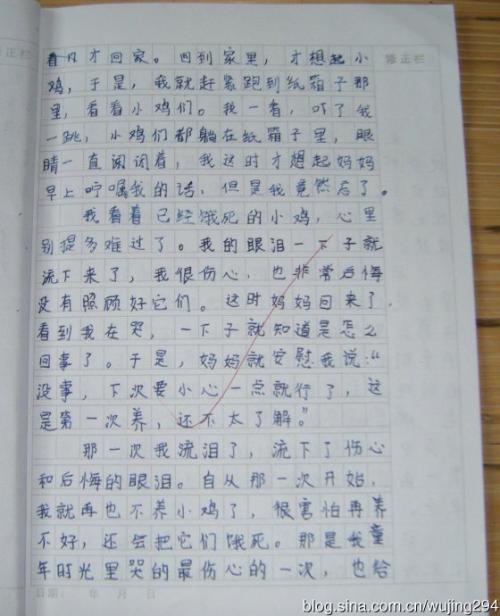 修正栏
着月才回家。回到家里，才想起小
鸡，于是，我就赶紧跑到纸箱子那
里，看看小鸡们。我一看，吓了我
一跳，小鸡们都躺在纸箱子里，眼
睛一直闭闭着，我这时才想起妈妈
早上叮嘱我的话，但是我竟然忘了。
我看着已经饿死的小鸡，心里
别提多难过了。我的眼泪一下子就
流下来了，我很伤心，也非常后悔
没有照顾好它们。这时妈妈回来了，
看到我在哭，一下子就知道是怎么
回事了。于是，妈妈就安慰我说：“
没事，下次要小心一点就行了，这
是第一次养，还不太了解。”
那一次我流泪了，流下了伤心
和后悔的眼泪。自从那一次开始，
我就再也不养小鸡了，很害怕再养
不好，还会把它们饿死。那是我童
年时光里哭的最伤心的一次，也给
日期： 年 月 日
blog.sina.com.cn/wujing294